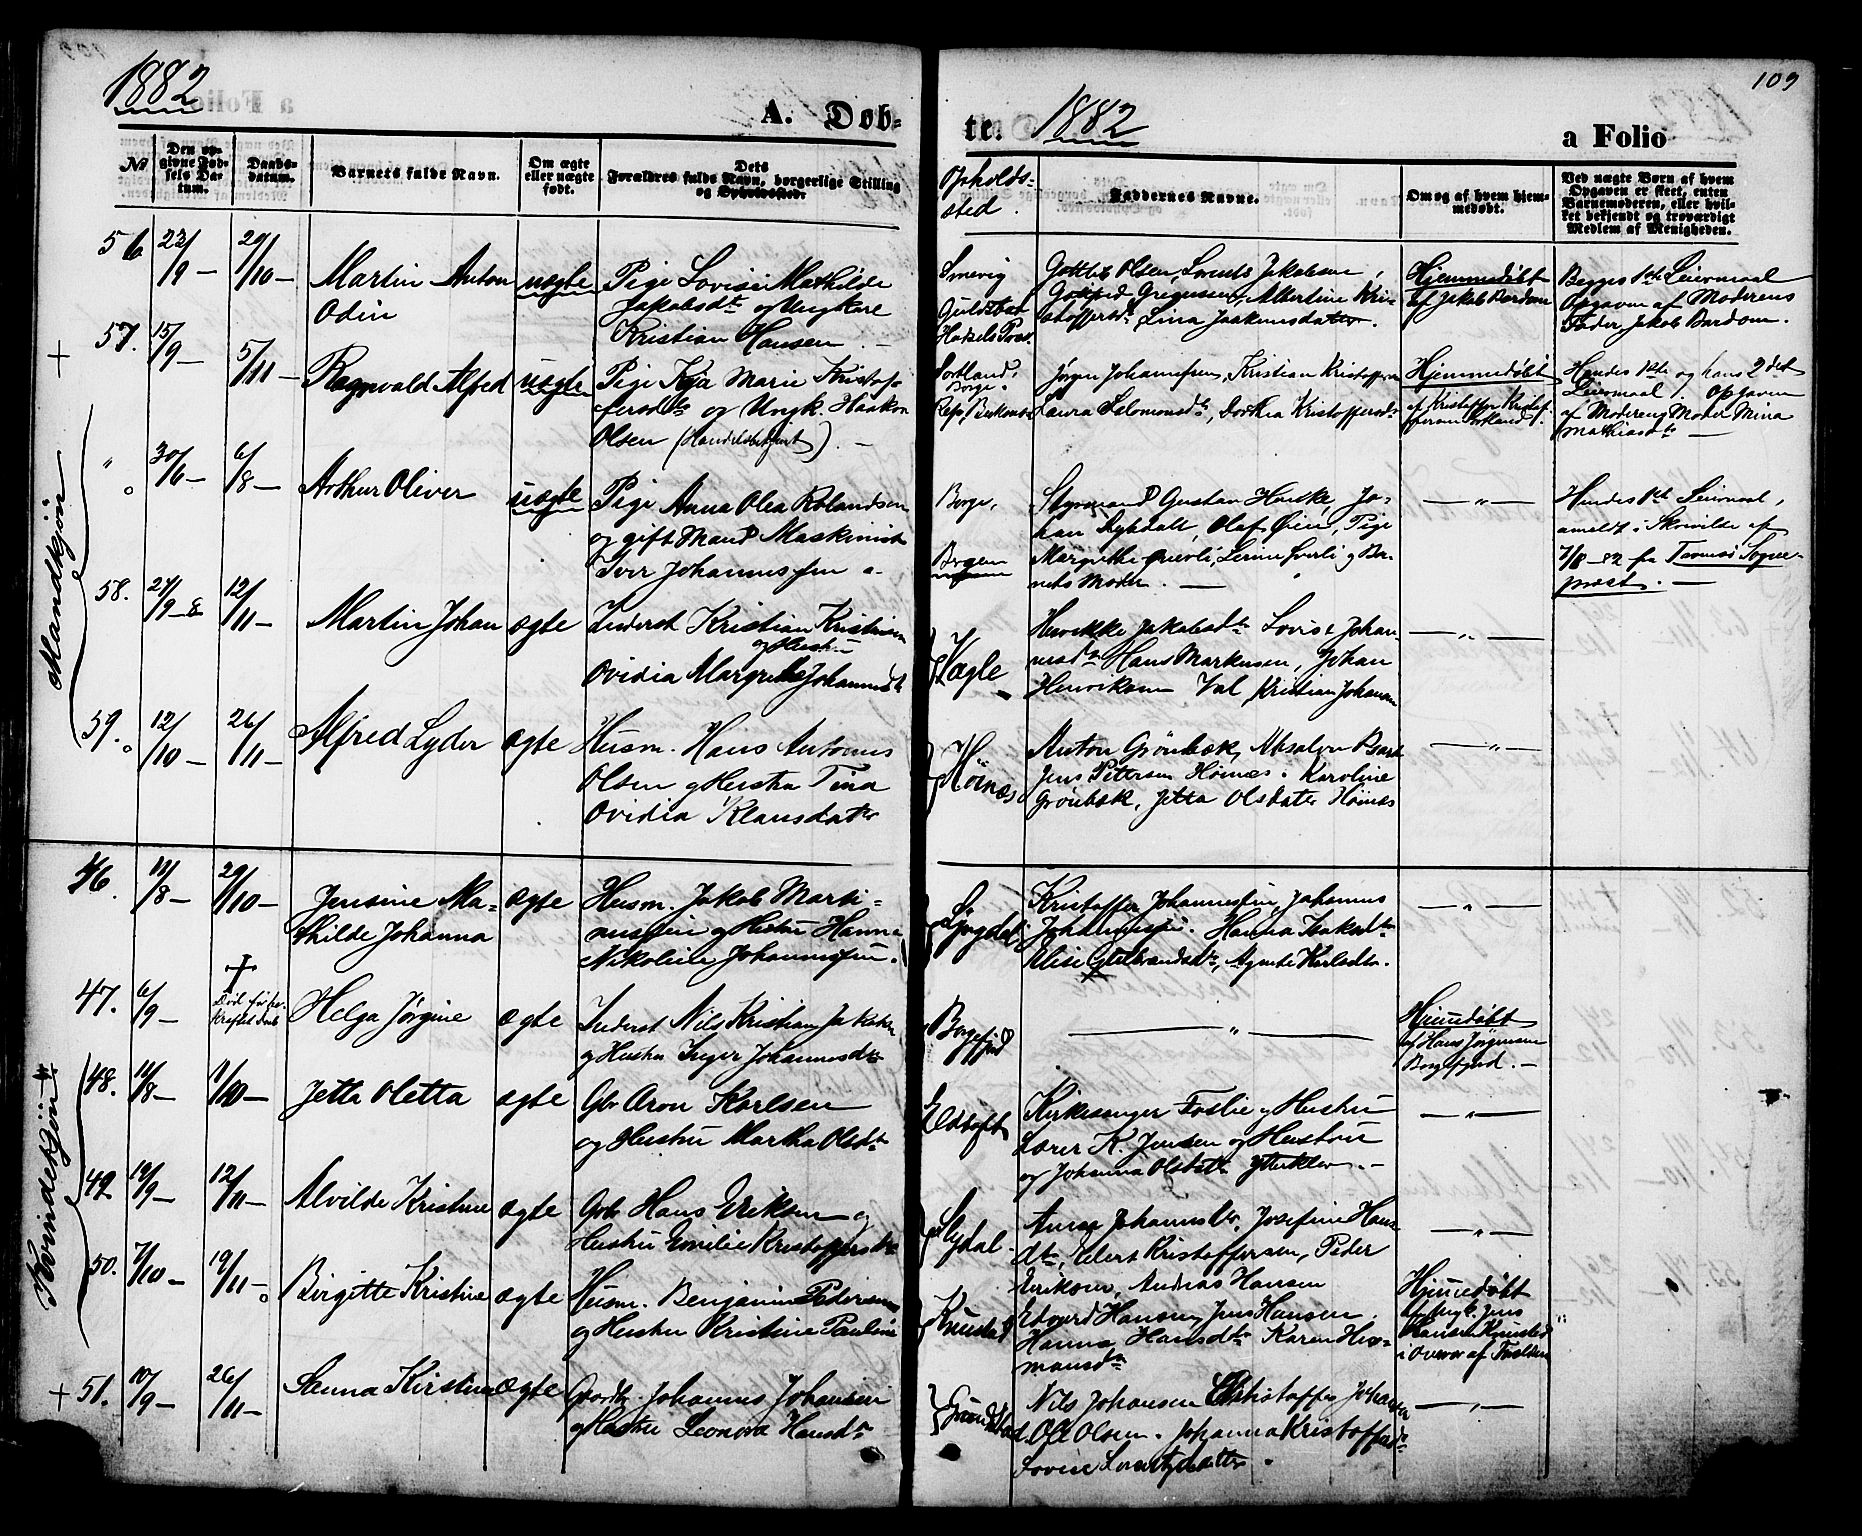 1882
A. Døb-
te. 1882
a Folio
109
No
Den op-
givne Fød-
sels Da-
tum.
Daabs-
datum.
Barnets fulde Navn.
Om ægte
eller uægte
født.
Dets
Forældres fulde Navn, borgerlige Stilling
og Opholdssted.
Opholds-
sted.
Faddernes Navne.
Om og af hvem hjem-
medøbt.
Ved uægte Børn af hvem
Opgaven er skeet, enten
Barnemoderen, eller hvil-
ket bekjendt og troværdigt
Medlem af Menigheden.
Mandkjön
56 23/9 – 29/10 – Martin Anton uægte Pige Lovise Mathilde
Odin Jakobsdt og Ungkarl
Kristian Hansen. –
Smevig
Gottlib Olsen, Lorents Jakobsen,
Gotfred Gregersen, Albertine Kri-
stoffersdt, Lina Joakimsdatter.
Hjemmedøbt
af Jakob Bardom
Begges 1ste Leiermaal
Opgaven af Moderens
Fader, Jakob Bardom.
+ 57. 15/9 – 5/11 – Ragnvald Alfred uægte Pige Kaja Marie Kristof-
fersdtr og Ungk. Haakon
Olsen (Handelsbetjent). –
Jørgen Johannesen, Kristian Kristoffersen
Laura Salomonsdt, Dorthea Kristoffersdt
Hjemmedøbt
af Kristoffer Kristof-
fersen
Hendes 1ste og hans 2det
Leiermaal. Opgaven
af Moderens Moder Mina
Mathiasdtr –
" 30/6 – 6/8 – Arthur Oliver uægte Pige Anna Olea Rolandsen
og gift Mand Maskinist
Iver Johannesen
Borge,
Bergen
Styrmand Gustav
Olaf Øien, Pige
Margrethe
nets Moder. –
– " –
Hendes 1ste Leiermaal,
anmeldt i Skrivelse af
7/8 – 82 fra Tromsø Sogne-
præst. –
58. 27/9 – 12/11 – Martin Johan ægte Inderst Kristian Kristensen
og Hustru
Ovidia Margrethe Johannesdt
Vægle
Henrikke Jakobsdt Lovise Johan-
nesdt Hans Markusen, Johan
Henriksen Val, Kristian Johansen
– " –
59. 12/10 – 26/11 – Alfred Lyder ægte Husm. Hans Antonius
Olsen og Hustru Tina
Ovidia Klausdatter
Höinæs
Anton Grönbæk, Absalon
Jens Pettersen Höinæs. Karoline
Grönbæk, Jetta Olsdatter Höinæs
– " –
Kvindekjön
46. 11/8 – 29/10 – Jensine Ma-
thilde Johanna ægte Husm. Jakob Marti-
nussen og Hustru Hanna
Nikoline Johannesen.
Kristoffer Johannesen, Johannes
Johannesen. Hanna Isaksdtr
Elise Gulbrandsdt, Agnete Karlsdtr.
– " –
47. 6/9 – † Død før be-
kræftet Daab Helga Jörgine ægte Inderst Nils Kristian Jakobsen
og Hustru Inger Johannesdtr
Borgefjord
– " –
Hjemmedøbt
af Hans Jørgensen
Borgefjord. –
48. 14/8 – 1/10 – Jetta Oletta ægte Gbr Aron Karlsen
og Hustru Martha Olsdt
Eltoft
Kirkesanger Foslie og Hustru
Lærer K. Jensen og Hustru
og Johanna Olsdatter –
– " –
49. 19/9 – 12/11 – Alvilde Kristine ægte Gbr Hans Eriksen og
Hustru Emilie Kristoffersdtr
Slydal.
Anna Johannesdtr, Josefine Hans-
dtr, Edert Kristoffersen, Peder
Eriksen, Andreas Hansen
– " –
50. 7/10 – 19/11 – Birgitte Kristine ægte Husm. Benjamin Pedersen
og Hustru Kristine Pauline
Knustad
Edvard Hansen, Jens Hansen,
Hanna Hansdtr Karen Her-
mansdtr
Hjemmedøbt
af Ungk. Jens
Hansen Knustad
i Overvær af Forældre
+ 51. 10/9 – 26/11 – Sanna Kirstine ægte Gaardbr. Johannes Johansen
og Hustru Leonora Hansdtr
Grundstad
Nils Johansen Christoffer Johansen
Ole Olsen. Johanna Kristoffersdtr
Lovise
– " –